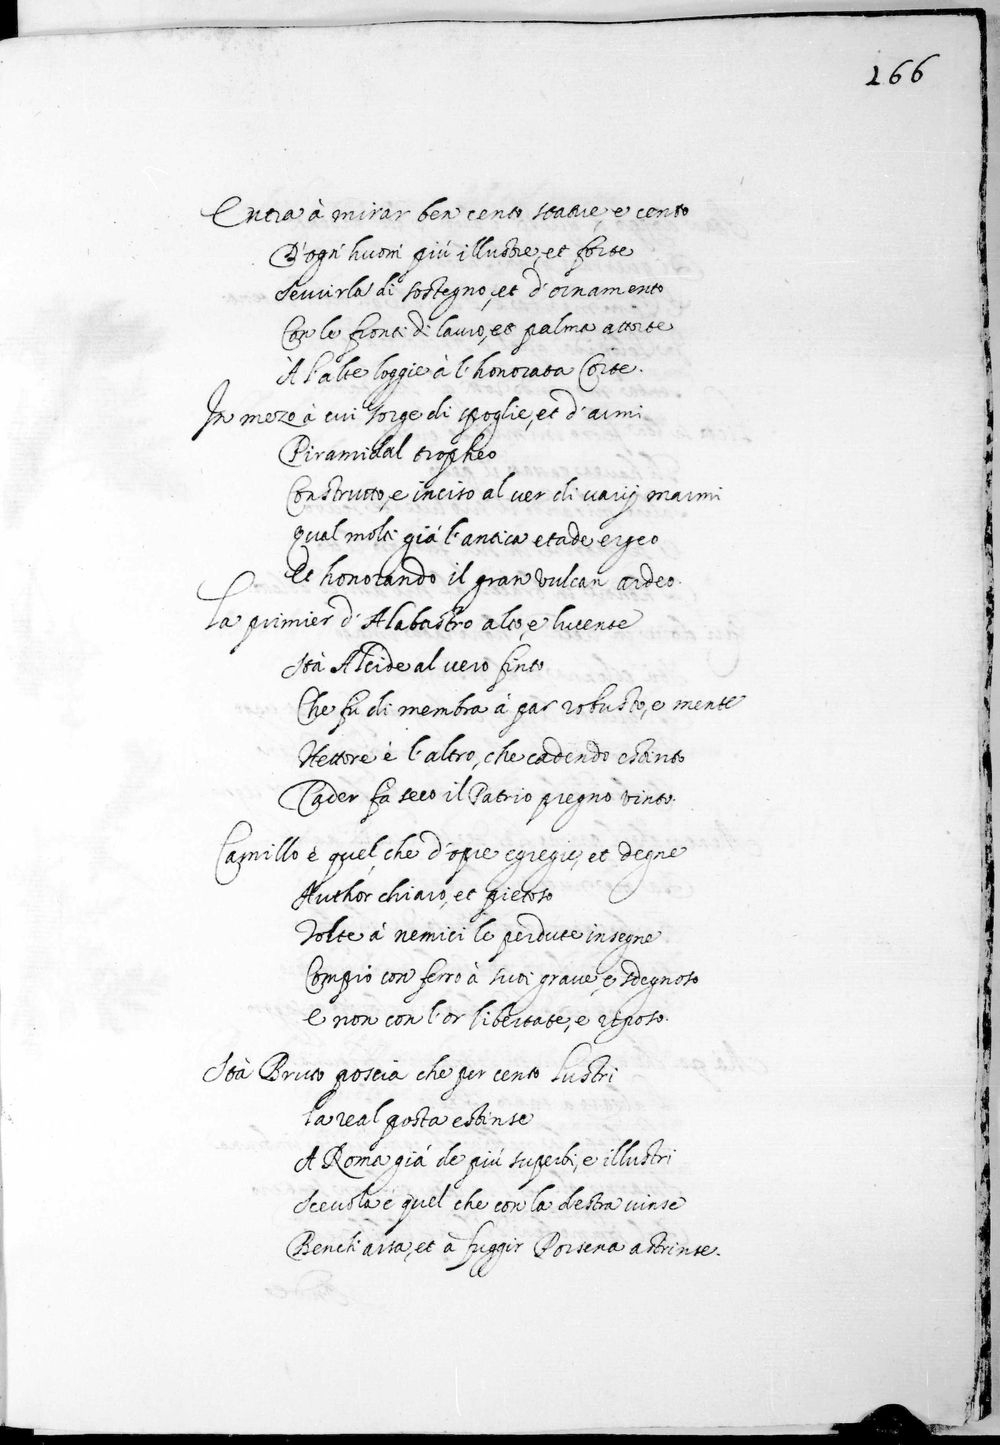 166
Entra à mirar ben cento statue, e cento
D'ogn' huom' più illustre, et forte
Seruirla di sostegno, et d'ornamento
Con le fronti di lauro, et palma attorte
À l'alte loggie à l'honorata Corte.
In mezo à cui sorge di spoglie, et d'armi
Piramidal tropheo
Constrútto, e inciso al ver di varij marmi
Qual molti già l'antica etade ergeo
Et honorando il gran Vulcan ardeo.
La primier d'Alabastro alto, e lucente
Stà Alcide al vero finto
Che fù di membra à par robusto, e mente
Hettore è l'altro, che cadendo estinto
Cader fa seco il Patrio regno vinto.
Camillo è quel, che d'opre egregie, et degne
Author chiaro, et pietoso
Tolte à nemici le perdute insegne
Comprò con ferro à suoi graue, e sdegnoso
E non con l'or libertate, e riposo.
Stà Bruto poscia che per cento lustri
La real posta estinse
A Roma già de più superbi, e illustri
Sceuola è quel che con la destra vinse
Bench'arsa, et à fuggir Porsena astrinse.